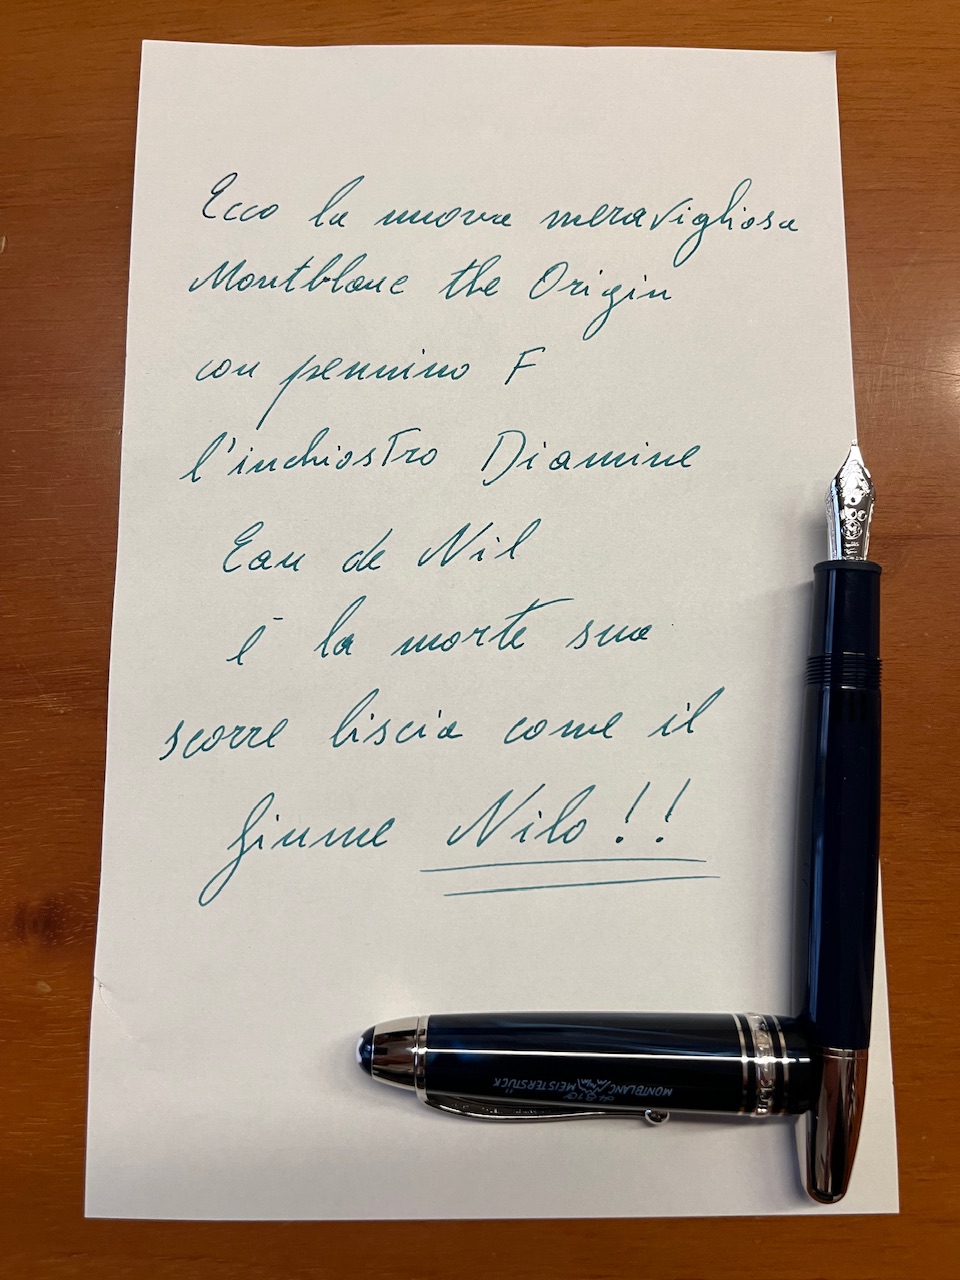 Ecco la nuova meravigliosa
Montblanc the Origin
con pennino F
l'inchiostro Diamine
Eau de Nil
è la morte sua
scorre liscia come il
fiume Nilo!!
MONTBLANC MEISTERSTÜCK
4810